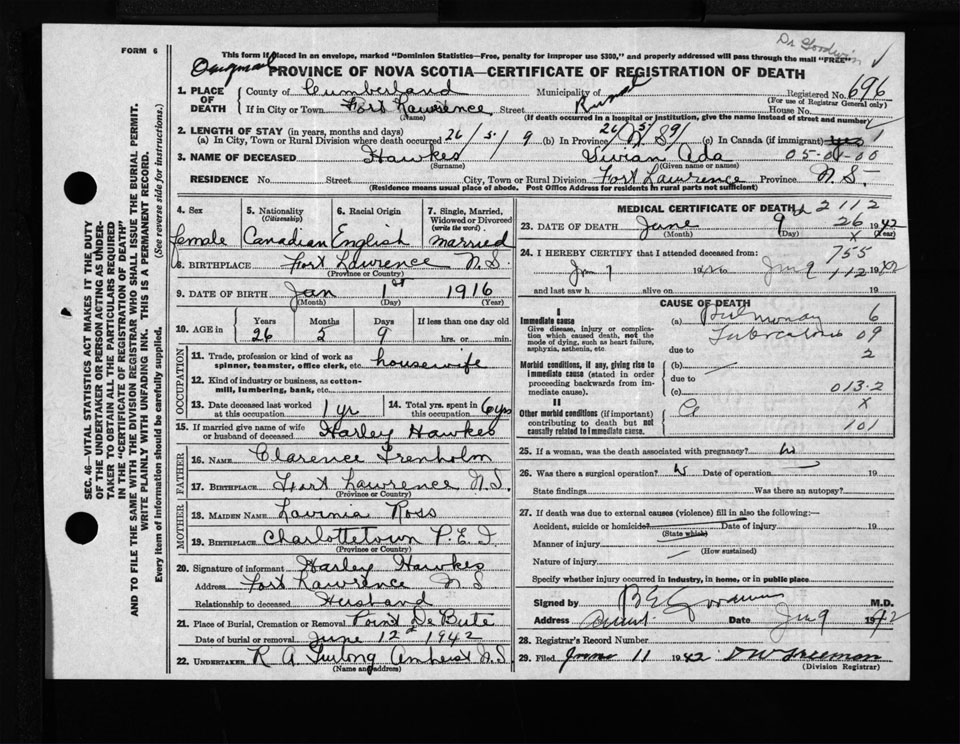 Dr Goodwin
FORM 6
This form if placed in an envelope, marked "Dominion Statistics—Free, penalty for improper use $300," and properly addressed will pass through the mail "FREE"
Original
PROVINCE OF NOVA SCOTIA—CERTIFICATE OF REGISTRATION OF DEATH
1. PLACE OF DEATH
County of Cumberland Municipality of Registered No. 696
(For use of Registrar General only)
If in City or Town Fort Lawrence Street Rural House No.
(Name) (If death occurred in a hospital or institution, give the name instead of street and number)
2. LENGTH OF STAY (in years, months and days)
(a) In City, Town or Rural Division where death occurred 26/5/9 (b) In Province 26/5/9 N S (c) In Canada (if immigrant)
3. NAME OF DECEASED Hawkes Vivian Ada 05-01-00
(Surname) (Given name or names)
RESIDENCE No. Street City, Town or Rural Division Fort Lawrence Province N.S.
(Residence means usual place of abode. Post Office Address for residents in rural parts not sufficient)
4. Sex female
5. Nationality (Citizenship) Canadian
6. Racial Origin English
7. Single, Married, Widowed or Divorced (write the word) married
8. BIRTHPLACE Fort Lawrence N.S.
(Province or Country)
9. DATE OF BIRTH Jan 1st 1916
(Month) (Day) (Year)
10. AGE in Years Months Days If less than one day old
26 5 9 hrs. or min.
OCCUPATION
11. Trade, profession or kind of work as spinner, teamster, office clerk, etc. housewife
12. Kind of industry or business, as cotton-mill, lumbering, bank, etc.
13. Date deceased last worked at this occupation 1 yr
14. Total yrs. spent in this occupation 6 yrs
15. If married give name of wife or husband of deceased Harley Hawkes
FATHER
16. NAME Clarence Trenholm
17. BIRTHPLACE Fort Lawrence N.S.
(Province or Country)
MOTHER
18. MAIDEN NAME Lavinia Ross
19. BIRTHPLACE Charlottetown P.E.I.
(Province or Country)
20. Signature of informant Harley Hawkes
Address Fort Lawrence N S
Relationship to deceased Husband
21. Place of Burial, Cremation or Removal Point De Bute
Date of burial or removal June 12th 1942
22. UNDERTAKER R A Furlong Amherst N.S
(Name and address)
MEDICAL CERTIFICATE OF DEATH
2112
23. DATE OF DEATH June 9 1942
26
(Month) (Day) (Year)
x
24. I HEREBY CERTIFY that I attended deceased from:
755
Jun 7 1942 to Jun 9 1942
112
and last saw h alive on 19
CAUSE OF DEATH
I
Immediate cause
Give disease, injury or complication which caused death, not the mode of dying, such as heart failure, asphyxia, asthenia, etc.
(a) Pulmonary 6
Tuberculosis 09
due to 2
Morbid conditions, if any, giving rise to immediate cause (stated in order proceeding backwards from immediate cause).
(b)
due to
(c) 013-2
II
Other morbid conditions (if important) contributing to death but not causally related to immediate cause.
x
101
25. If a woman, was the death associated with pregnancy? No
26. Was there a surgical operation? N Date of operation 19
State findings Was there an autopsy?
27. If death was due to external causes (violence) fill in also the following:—
Accident, suicide or homicide? Date of injury 19
(State which)
Manner of injury
(How sustained)
Nature of injury
Specify whether injury occurred in industry, in home, or in public place
Signed by B E Goodwin M.D.
Address Amherst Date Jun 9 1942
28. Registrar's Record Number
29. Filed June 11 1942 D W Freeman
(Division Registrar)
SEC. 46—VITAL STATISTICS ACT MAKES IT THE DUTY
OF THE UNDERTAKER OR PERSON ACTING AS UNDER-
TAKER TO OBTAIN ALL THE PARTICULARS REQUIRED
IN THE "CERTIFICATE OF REGISTRATION OF DEATH"
AND TO FILE THE SAME WITH THE DIVISION REGISTRAR WHO SHALL ISSUE THE BURIAL PERMIT.
WRITE PLAINLY WITH UNFADING INK. THIS IS A PERMANENT RECORD.
Every item of information should be carefully supplied.
(See reverse side for instructions.)